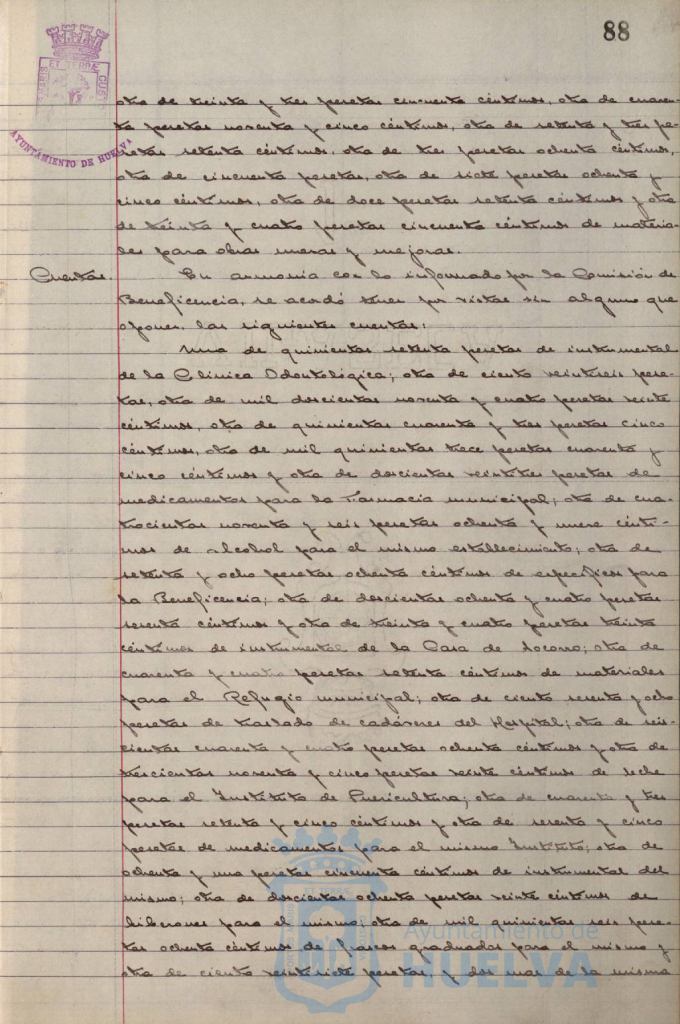 88
PORTUS MARIS ET TERRÆ CUSTODIA
AYUNTAMIENTO DE HUELVA
otra de treinta y tres pesetas cincuenta céntimos, otra de cuaren-
ta pesetas noventa y cinco céntimos, otra de setenta y tres pe-
setas setenta céntimos, otra de tres pesetas ochenta céntimos,
otra de cincuenta pesetas, otra de siete pesetas ochenta y
cinco céntimos, otra de doce pesetas setenta céntimos y otra
de treinta y cuatro pesetas cincuenta céntimos de materia-
les para obras nuevas y mejoras.
Cuentas. En armonía con lo informado por la Comisión de
Beneficencia, se acordó tener por vistas sin alguno que
oponer, las siguientes cuentas:
Una de quinientas setenta pesetas de instrumental
de la Clínica Odontológica; otra de ciento veintiseis pese-
tas, otra de mil doscientas noventa y cuatro pesetas veinte
céntimos, otra de quinientas cuarenta y tres pesetas cinco
céntimos, otra de mil quinientas trece pesetas cuarenta y
cinco céntimos y otra de doscientas veintitres pesetas de
medicamentos para la Farmacia municipal; otra de cua-
trocientas noventa y seis pesetas ochenta y nueve cénti-
mos de alcohol para el mismo establecimiento; otra de
setenta y ocho pesetas ochenta céntimos de específicos para
la Beneficencia; otra de doscientas ochenta y cuatro pesetas
sesenta céntimos y otra de treinta y cuatro pesetas treinta
céntimos de instrumental de la Casa de Socorro; otra de
cuarenta y cuatro pesetas setenta céntimos de materiales
para el Refugio municipal; otra de ciento sesenta y ocho
pesetas de traslado de cadáveres del Hospital; otra de seis-
cientas cuarenta y cuatro pesetas ochenta céntimos y otra de
trescientas noventa y cinco pesetas veinte céntimos de leche
para el Instituto de Puericultura; otra de cuarenta y tres
pesetas setenta y cinco céntimos y otra de sesenta y cinco
pesetas de medicamentos para el mismo Instituto; otra de
ochenta y una pesetas cincuenta céntimos de instrumental del
mismo; otra de doscientas ochenta pesetas veinte céntimos de
biberones para el mismo; otra de mil quinientas seis pese-
tas ochenta céntimos de frascos graduados para el mismo y
otra de ciento veintisiete pesetas, y dos mas de la misma
Ayuntamiento de
HUELVA